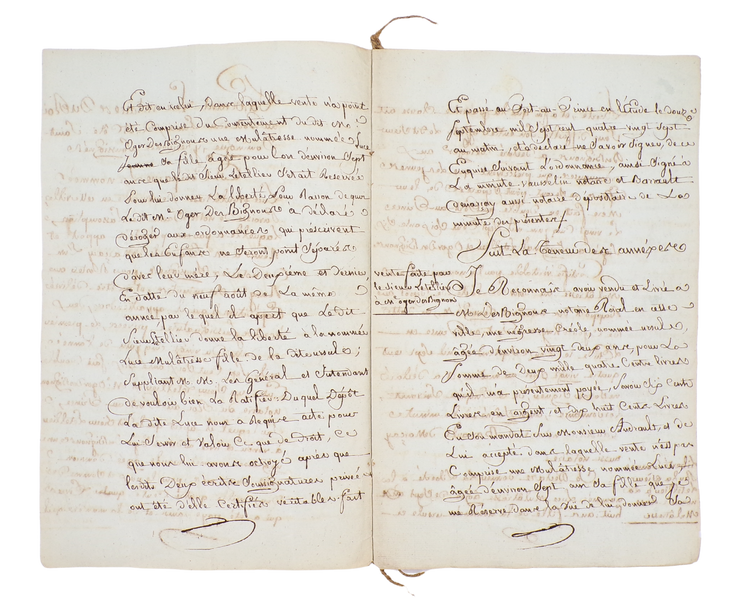 Et dit au icelui, dans laquelle vente n'a point
été Comprise du Consentement du dit Me
Oger Des Bignons une Mulâtresse nommée Luce
sa fille agée pour lors d'environ Sept
ans que ledit Sieur Letellier S'étoit Reservée
Pour lui donner La liberté, Pour Raison de quoi
Ledit Me Oger Des Bignons a déclaré
déroger aux ordonnances qui prescrivent
que les Enfans ne Seront point Séparés
d'avec leur mère, Le Deuxième et dernier
En datte du neuf août de La même
année par lequel il appert que Ledit
Sieur Letellier donne la liberté à la nommée
Luce Mulâtresse fille de la dite ursule;
Suppliant M. M. Les Général et Intendant
de vouloir bien La Ratifier; Duquel Dépôt
La dite Luce nous a Requis acte pour
Lui Servir et Valoir Ce que de Droit, Ce
que nous lui avons octroyé après que
lesdits Deux écrits Sous signatures privées
ont été d'elle Certifiés véritables. fait
Et passé au Port-au-Prince en l'Étude le douze
Septembre mil Sept cent quatre vingt Sept
au matin; et a déclaré ne Savoir Signer, de ce
Enquise Suivant L'ordonnance, ainsi Signé à
La minute Vauselin notaire et Barrault
aussi notaire dépositaire de La
minute des présentes
Suit La Teneur des annexes
vente faite par
le Sieur Letellier
à Me oger des Bignons
Je Reconnais avoir vendu et Livré à
M. Des Bignons notaire Royal en cette
ville, une négresse Créole nommée ursule
âgée d'Environ vingt deux ans, pour La
Somme de Deux mille quatre Cents livres
qu'il m'a présentement payée, Savoir Six Cents
Livres en argent, et Dix huit Cents Livres
En Son mandat Sur Monsieur Audrault, et de
Lui accepté dans laquelle vente n'est pas
Comprise une Mulâtresse nommée Luce
âgée d'environ Sept ans Sa fille que je
me Réserve dans la vue de lui donner Sa